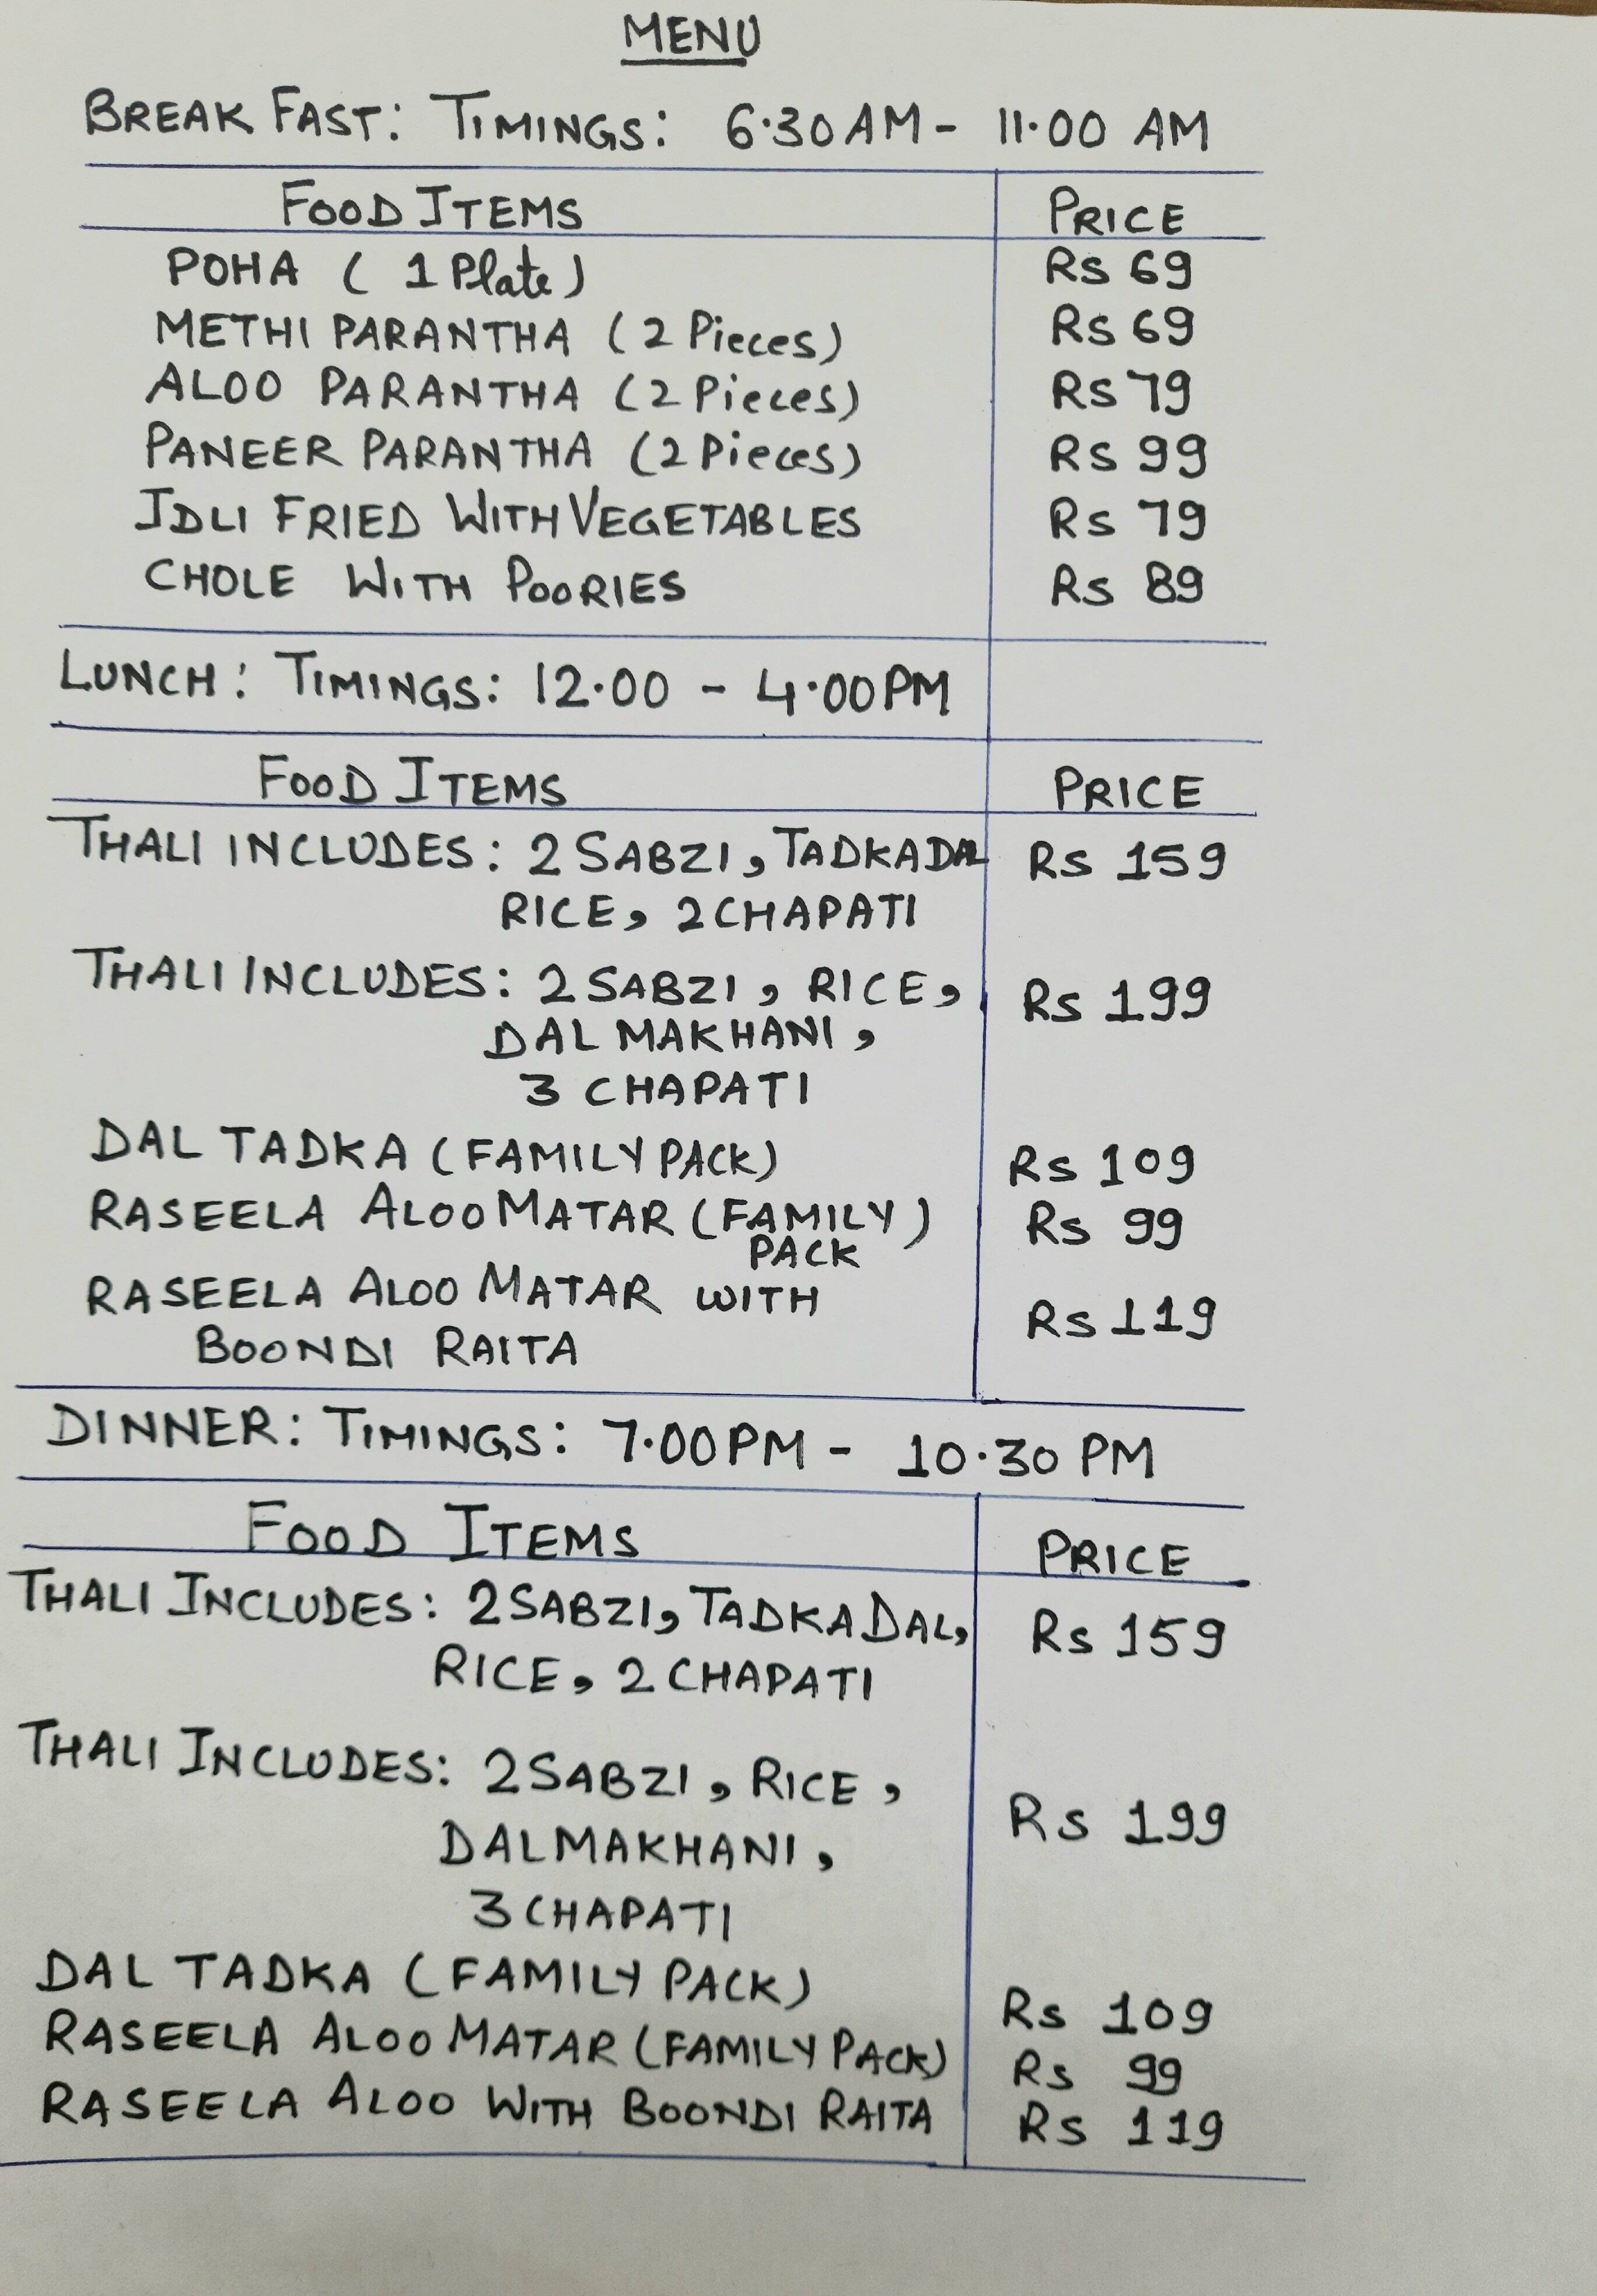 MENU
BREAK FAST: TIMINGS: 6.30 AM - 11.00 AM
FOOD ITEMS PRICE
POHA ( 1 Plate ) Rs 69
METHI PARANTHA ( 2 Pieces) Rs 69
ALOO PARANTHA (2 Pieces) Rs 79
PANEER PARANTHA (2 Pieces) Rs 99
IDLI FRIED WITH VEGETABLES Rs 79
CHOLE WITH POORIES Rs 89
LUNCH: TIMINGS: 12.00 - 4.00 PM
FOOD ITEMS PRICE
THALI INCLUDES: 2 SABZI, TADKA DAL Rs 159
RICE, 2 CHAPATI
THALI INCLUDES: 2 SABZI, RICE, Rs 199
DAL MAKHANI,
3 CHAPATI
DAL TADKA (FAMILY PACK) Rs 109
RASEELA ALOO MATAR (FAMILY) Rs 99
PACK
RASEELA ALOO MATAR WITH Rs 119
BOONDI RAITA
DINNER: TIMINGS: 7.00 PM - 10.30 PM
FOOD ITEMS PRICE
THALI INCLUDES: 2 SABZI, TADKA DAL, Rs 159
RICE, 2 CHAPATI
THALI INCLUDES: 2 SABZI, RICE, Rs 199
DAL MAKHANI,
3 CHAPATI
DAL TADKA (FAMILY PACK) Rs 109
RASEELA ALOO MATAR (FAMILY PACK) Rs 99
RASEELA ALOO WITH BOONDI RAITA Rs 119